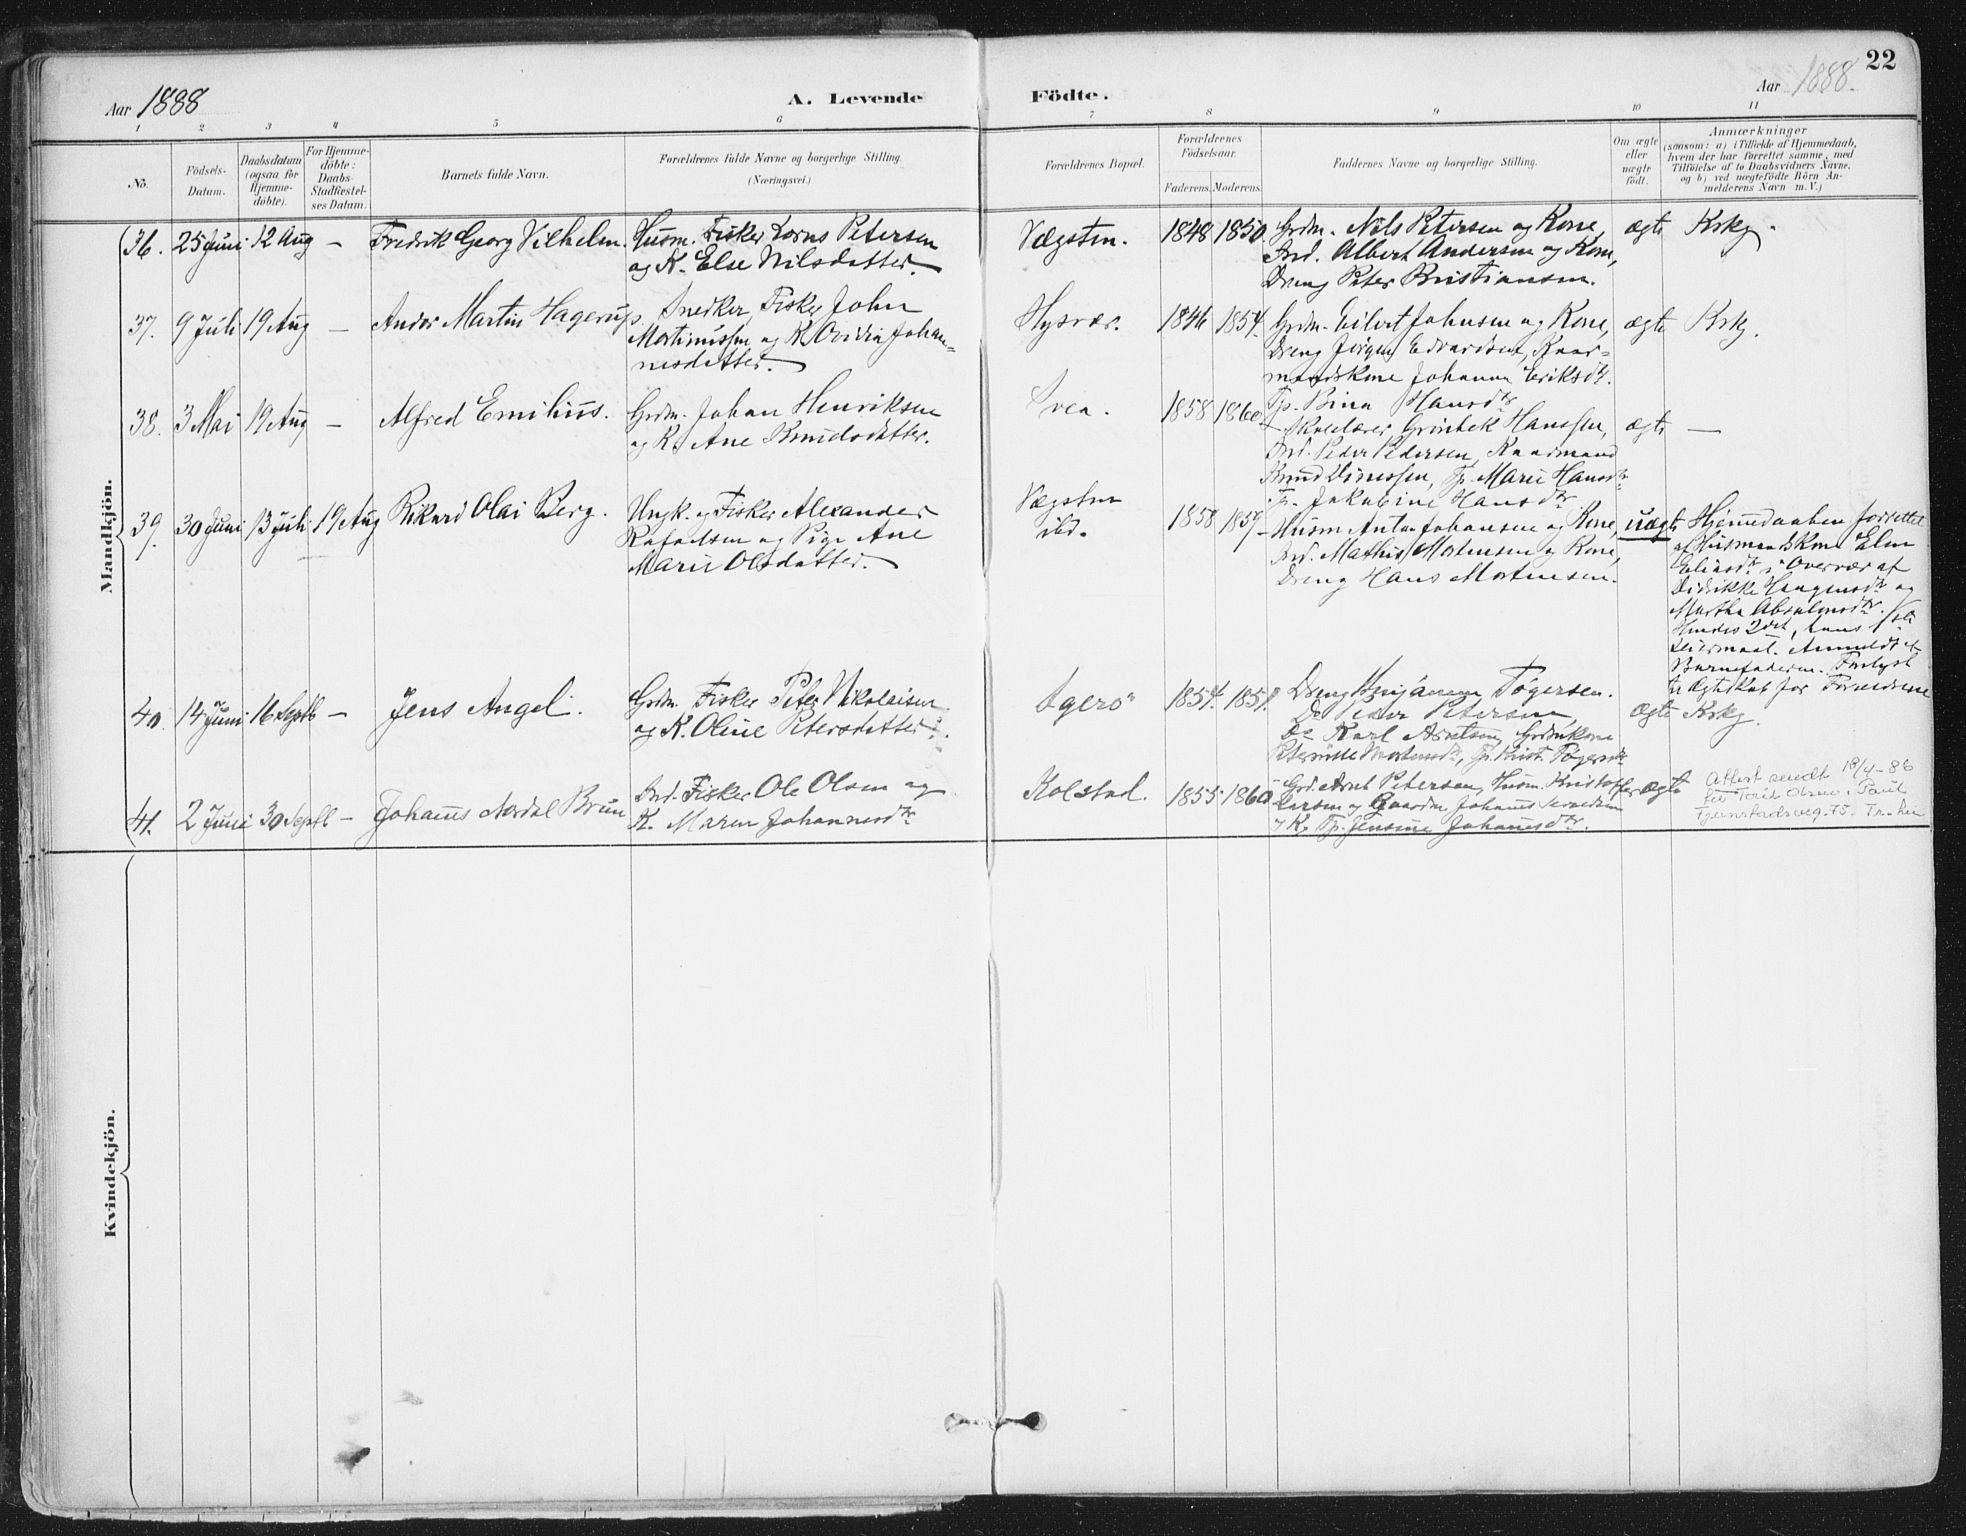 22
Aar 1888
A. Levende Födte.
Aar 1888.
1 2 3 4 5 6 7 8 9 10 11
No.
Födsels-
Datum.
Daabsdatum
(ogsaa for
Hjemme-
döbte).
For Hjemme-
döbte:
Daabs-
Stadfæstel-
ses Datum.
Barnets fulde Navn.
Forældrenes fulde Navne og borgerlige Stilling.
(Næringsvei.)
Forældrenes Bopæl.
Forældrenes
Födselsaar.
Faderens. Moderens.
Faddernes Navne og borgerlige Stilling.
Om ægte
eller
uægte
födt.
Anmærkninger
(saasom: a) i Tilfælde af Hjemmedaab,
hvem der har forrettet samme, med
Tilföielse af to Daabsvidners Navne,
og b) ved uægtefödte Börn An-
melderens Navn m. V.)
Mandkjön.
36. 25 Juni 12 Aug — Fredrik Georg Vilhelm.
Husm. Fisker Lorns Petersen
og K. Else Nilsdatter.
Vægsten. 1848 1850.
Grdm. Nils Petersen og Kone,
Ind. Albert Andersen og Kone,
Dreng Peter Kristiansen.
ægte Krkg.
37. 9 Juli 19 Aug — Ander Martin Hagerup.
Snedker, Fisker John
Mortinussen og K. Ovidia Johan-
nesdatter.
Hysvær. 1846 1854.
Grdm. Eilert Johnsen og Kone,
Dreng Jörgen Edvardsen, Kaar-
mandskone Johanna Eriksdtr.
Tp. Bina Hansdtr
ægte Krkg.
38. 3 Mai 19 Aug — Alfred Emilius.
Grdm. Johan Henriksen
og K. Ane Knudsdatter.
1858 1860
Skolelærer Grönbek Hanssen,
Ind. Peder Pedersen, Kaarmand
Knud Dinessen, Tp. Marie Hansdtr
Tp. Jakobine Hansdtr
ægte —
39. 30 Juni 13 Juli 19 Aug Rikard Olai Berg.
Ungk. og Fisker Alexander
Rafaelsen og Pige Ane
Marie Olsdatter.
Vægsten
ibd.
1858 1859
Husm Anton Johansen og Kone,
Ind. Mathis Mortensen og Kone,
Dreng Hans Mortensen.
uægte
Hjemmedaaben forrettet
af Husmandskone Elen
Eliasdtr i Overvær af
Didrikke Haagensdtr og
Martha Absalonsdtr.
Hendes 2det, hans 1ste
Leiermaal. Anmeldt af
Barnefaderen. Forlyst
til Ægteskab for Forældrene
40. 14 Juni 16 Septb — Jens Angel.
Grdm. Fisker Peter Nikolaisen
og K. Oline Petersdatter.
Igerö 1854. 1851.
Dreng Benjamin Tøgersen.
Do Peder Petersen,
Do Karl Arntsen, Grdmkone
Tp. Krist. Tøgersdtr
ægte Krkg.
41. 2 Juni 30 Septb — Johannes Nordal Brun
Ind. Fisker Ole Olsen og
K. Maren Johannesdtr
Kolstad. 1855 1860
Grd. Arnt Petersen, Husm. Kristoffer
Larsen og Gaardm Johannes
og K. Tp. Jensine Johannesdtr.
ægte
Attest sendt 18/4-86
Kvindekjön.